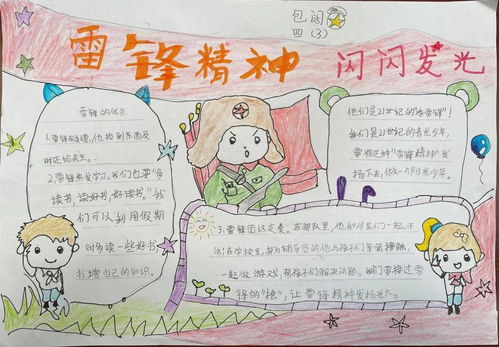 包闲
四(3)
雷锋精神 闪闪发光
雷锋的优点
1.雷锋有道德，他捡到东西及
时还给失主。
2.雷锋热爱学习。我们也要“多
读书，读好书，好读书。”我
们可以利用假期
时多读一些好书，
来增自己的知识。
他们是21世纪的“活雷锋”！
我们是21世纪的
少年，
要将这种“雷锋精神”发
扬下去，做一个阳光少年。
3.雷锋团结友爱。在部队里，他和战友们一起干
活；在学校里，
与孩子们亲密接触，
一起做游戏，帮孩子们解决问题。我们要接过雷
锋的“枪”，让雷锋精神发扬光大。